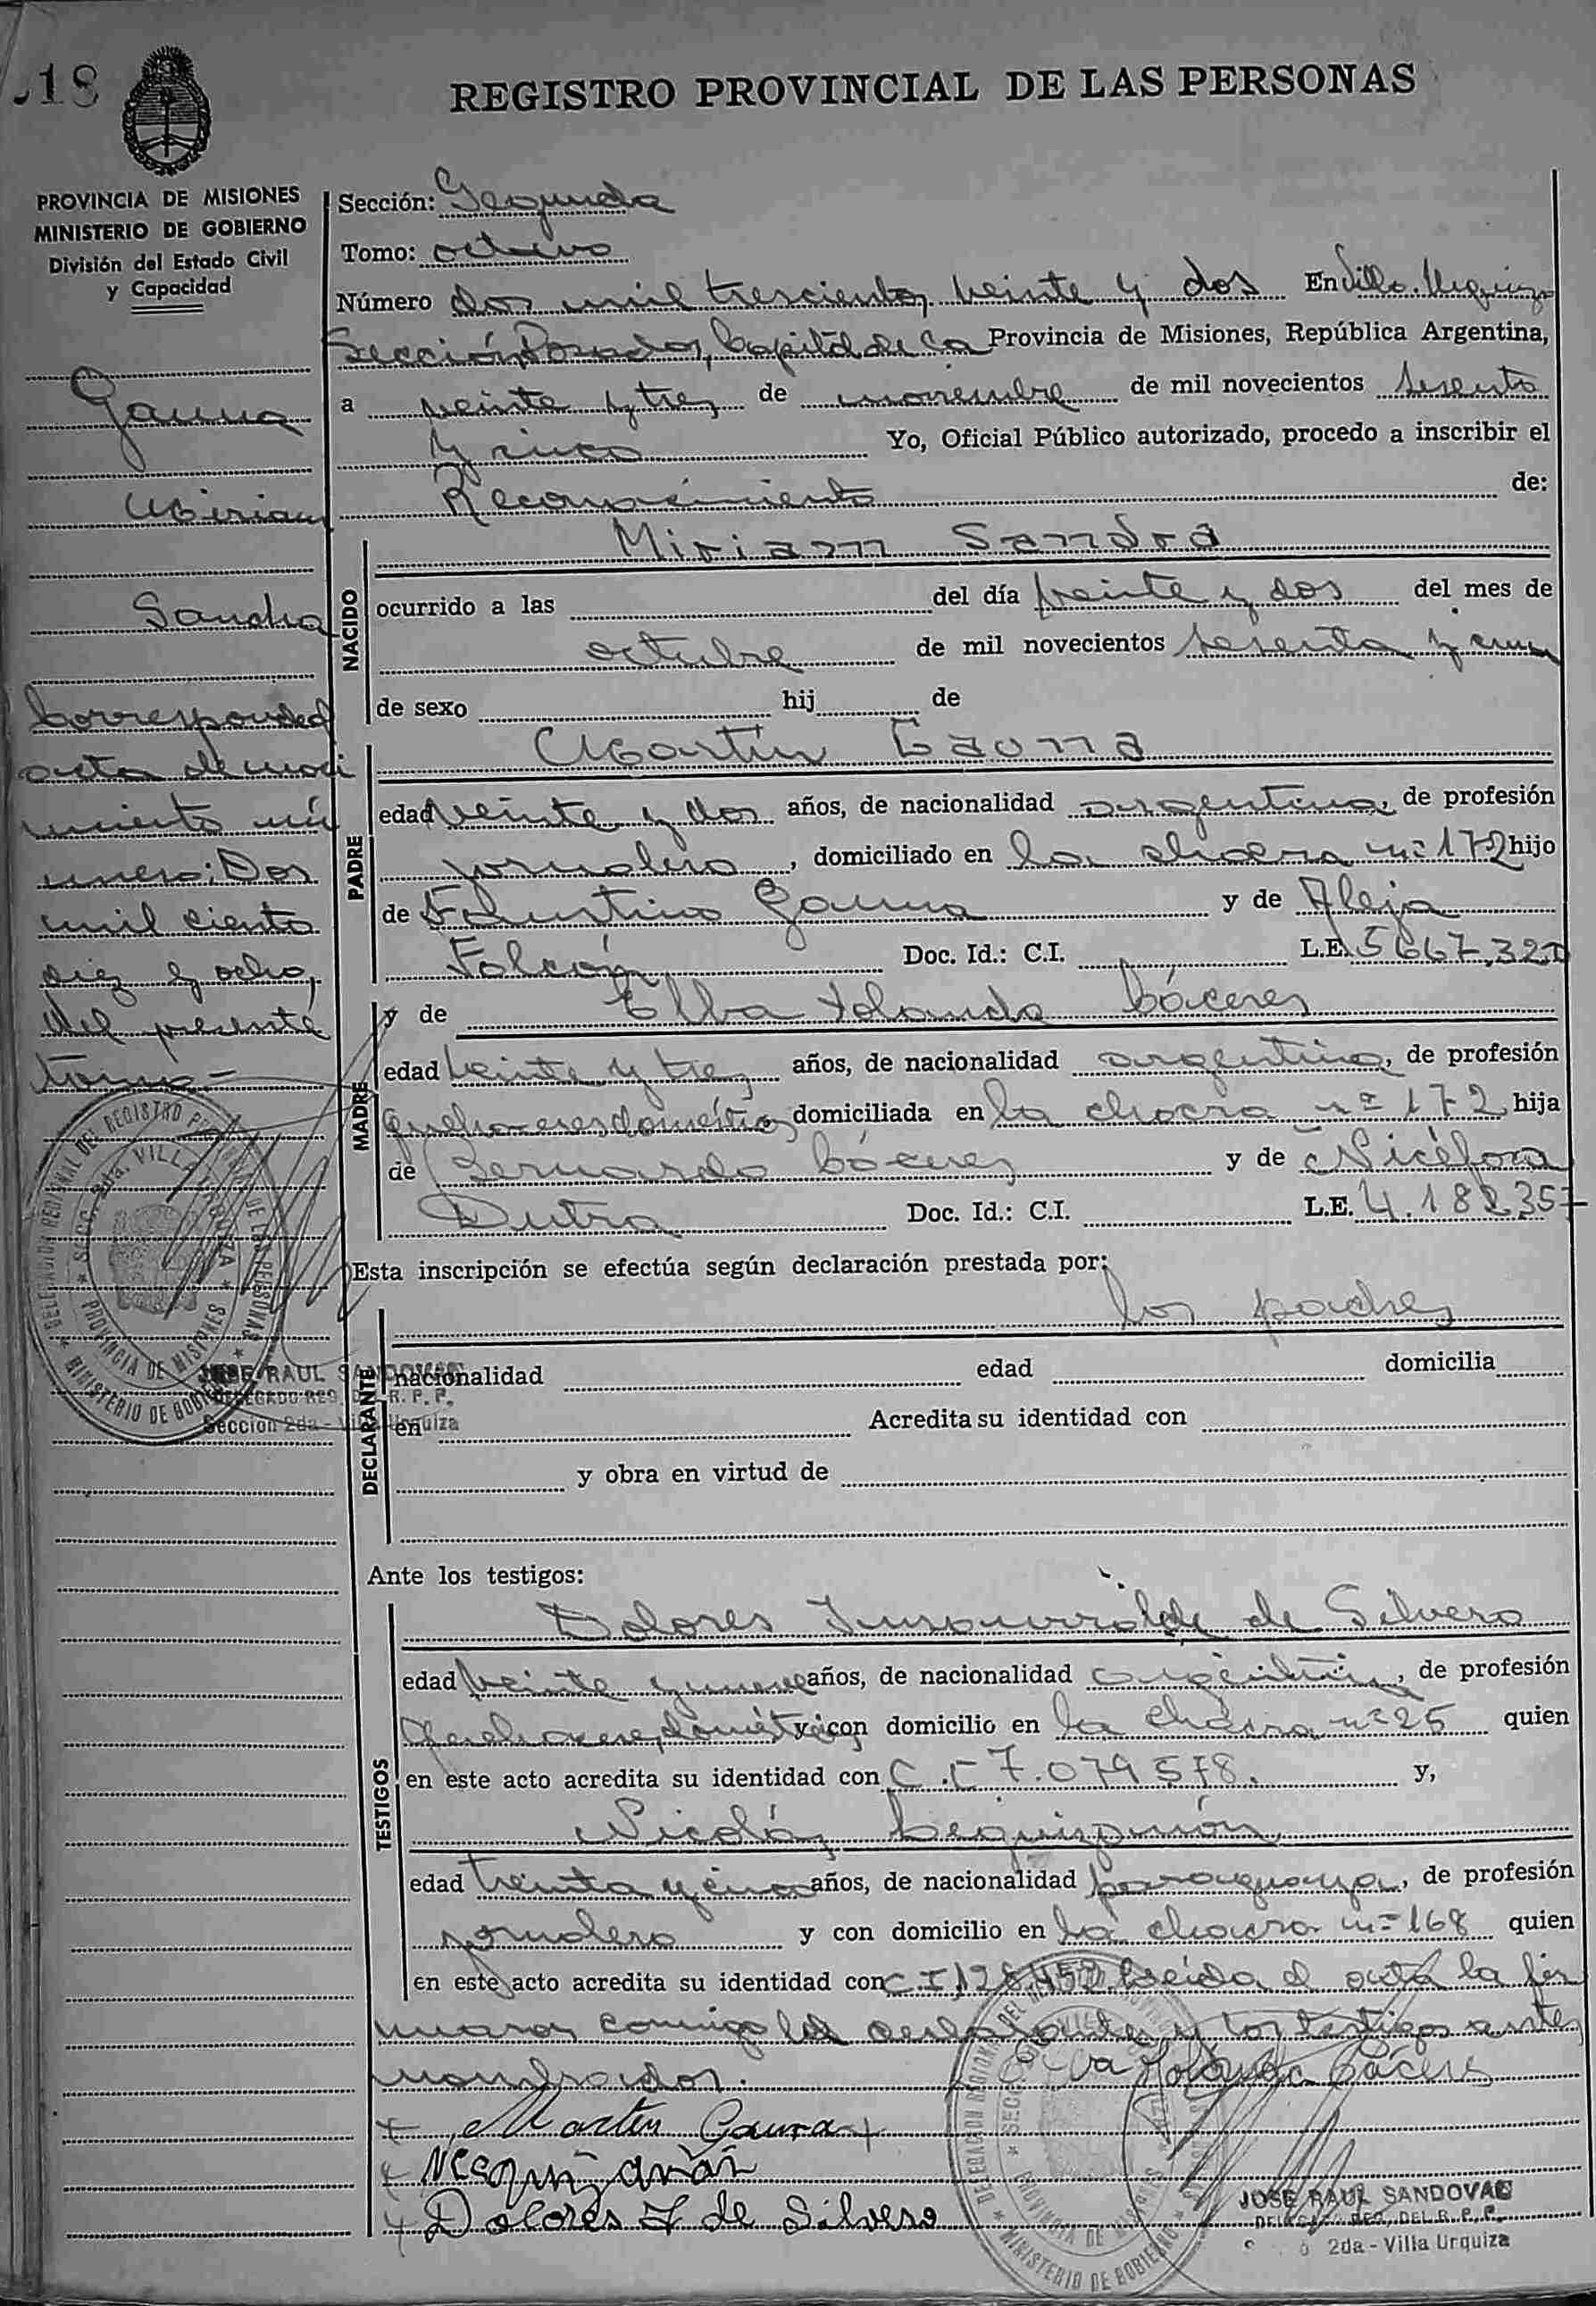 18
REGISTRO PROVINCIAL DE LAS PERSONAS
PROVINCIA DE MISIONES
MINISTERIO DE GOBIERNO
División del Estado Civil
y Capacidad
Gauna
Mirian
Sandra
Corresponde al
acta de naci
miento nú
mero: Dos
mil ciento
diez y ocho,
del presente
tomo-
Sección: Segunda
Tomo: octavo
Número dos mil trescientos veinte y dos En Villa Urquiza
Sección Posadas, Capital de la Provincia de Misiones, República Argentina,
a veinte y tres de noviembre de mil novecientos sesenta
y cinco Yo, Oficial Público autorizado, procedo a inscribir el
Reconocimiento de:
NACIDO
Miriam Sandra
ocurrido a las del día veinte y dos del mes de
octubre de mil novecientos sesenta y cinco
de sexo hij de
PADRE
Martín Gauna
edad veinte y dos años, de nacionalidad argentina, de profesión
jornalero, domiciliado en la chacra nº 172 hijo
de Faustino Gauna y de Aleja
Falcón, Doc. Id.: C.I. L.E. 5667.321
MADRE
y de Elba Yolanda Cáceres
edad veinte y tres años, de nacionalidad argentina, de profesión
quehaceres domésticos domiciliada en la chacra nº 172 hija
de Bernardo Cáceres y de Nicéfora
Dutra Doc. Id.: C.I. L.E. 4.182357
Esta inscripción se efectúa según declaración prestada por:
los padres
DECLARANTE
nacionalidad edad domicilia
en Acredita su identidad con
y obra en virtud de
Ante los testigos:
TESTIGOS
Dolores Insaurralde de Silvero
edad veinte y nueve años, de nacionalidad argentina, de profesión
quehaceres domésticos y con domicilio en la chacra nº 25 quien
en este acto acredita su identidad con C.I 7.079578. y,
Nicolás
edad treinta y cinco años, de nacionalidad paraguaya, de profesión
jornalero y con domicilio en la chacra nº 168 quien
en este acto acredita su identidad con C.I Leída el acta la fir
maron conmigo los declarantes y los testigos antes
nombrados.
Elba Yolanda Cáceres
Martín Gauna
Dolores I de Silvero
DELEGACION REGIONAL DEL REGISTRO PROVINCIAL DE LAS PERSONAS
SECC. 2da. VILLA URQUIZA
PROVINCIA DE MISIONES
MINISTERIO DE GOBIERNO
JOSE RAUL SANDOVAL
DELEGADO REG. DEL R. P. P.
Seccion 2da - Villa Urquiza
JOSE RAUL SANDOVAL
DELEGADO REG. DEL R. P. P.
2da - Villa Urquiza